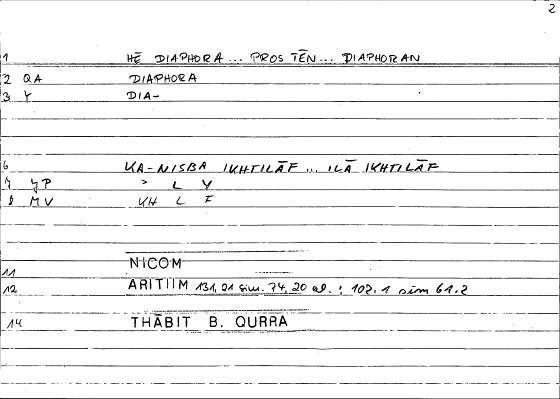 2
1 HĒ DIAPHORA ... PROS TĒN ... DIAPHORAN
2 QA DIAPHORA
3 Y DIA-
6 KA-NISBA IKHTILĀF ... ILĀ IKHTILĀF
7 YP ʾ L Y
8 MV KH L F
11 NICOM
12 ARITIIM 131,21 sim. 74,20 al. : 102.1 sim 61.2
14 THĀBIT B. QURRA